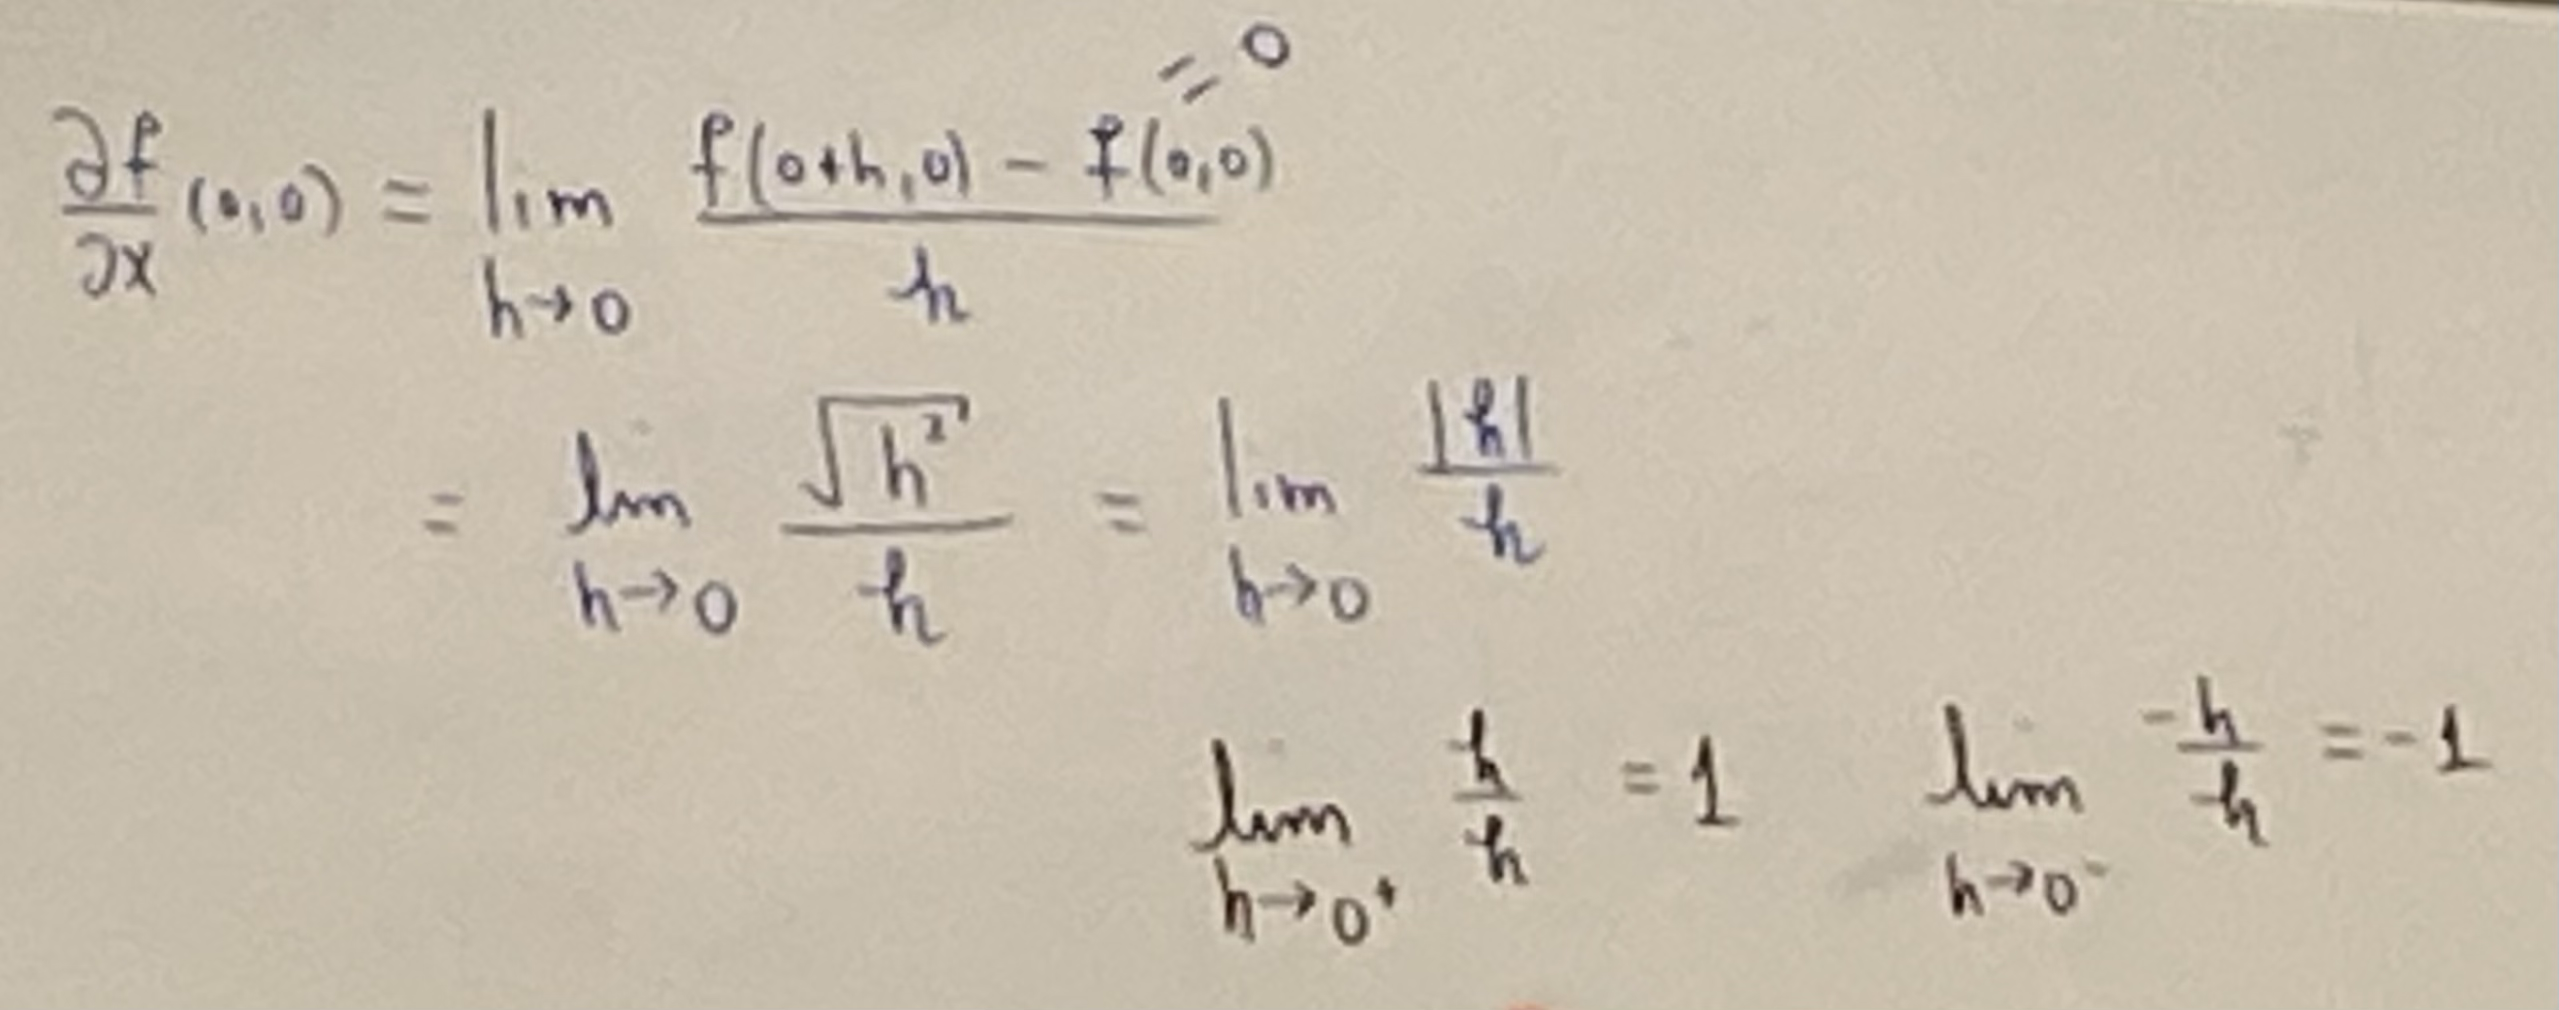 = 0
∂f/∂x (0,0) = lim h→0 (f(0+h,0) - f(0,0))/h
= lim h→0 √(h²)/h = lim h→0 |h|/h
lim h→0⁺ h/h = 1 lim h→0⁻ -h/h = -1